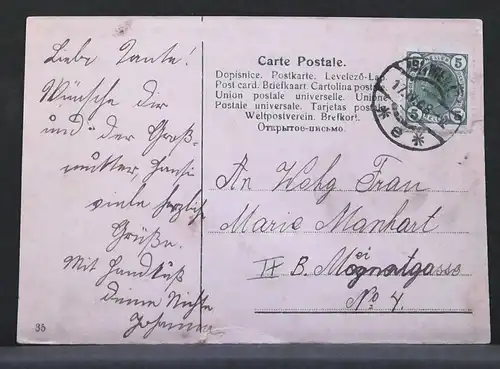 Liebe Tante!
Wünsche dir
und der Groß-
mutter, Hansi
viele herzliche
Grüße.
Mit Handkuß
deine Nichte
Johanna
35
Carte Postale.
Dopisnice. Postkarte. Levelező-La
Post card. Briefkaart. Cartolina posta
Union postale universelle. Unione
Postale universale. Tarjetas posta
Weltpostverein. Brefkort.
Открытое-письмо.
5 5
5 5
* e *
An Wohg Frau
Marie Manhart
II B.
No 4.